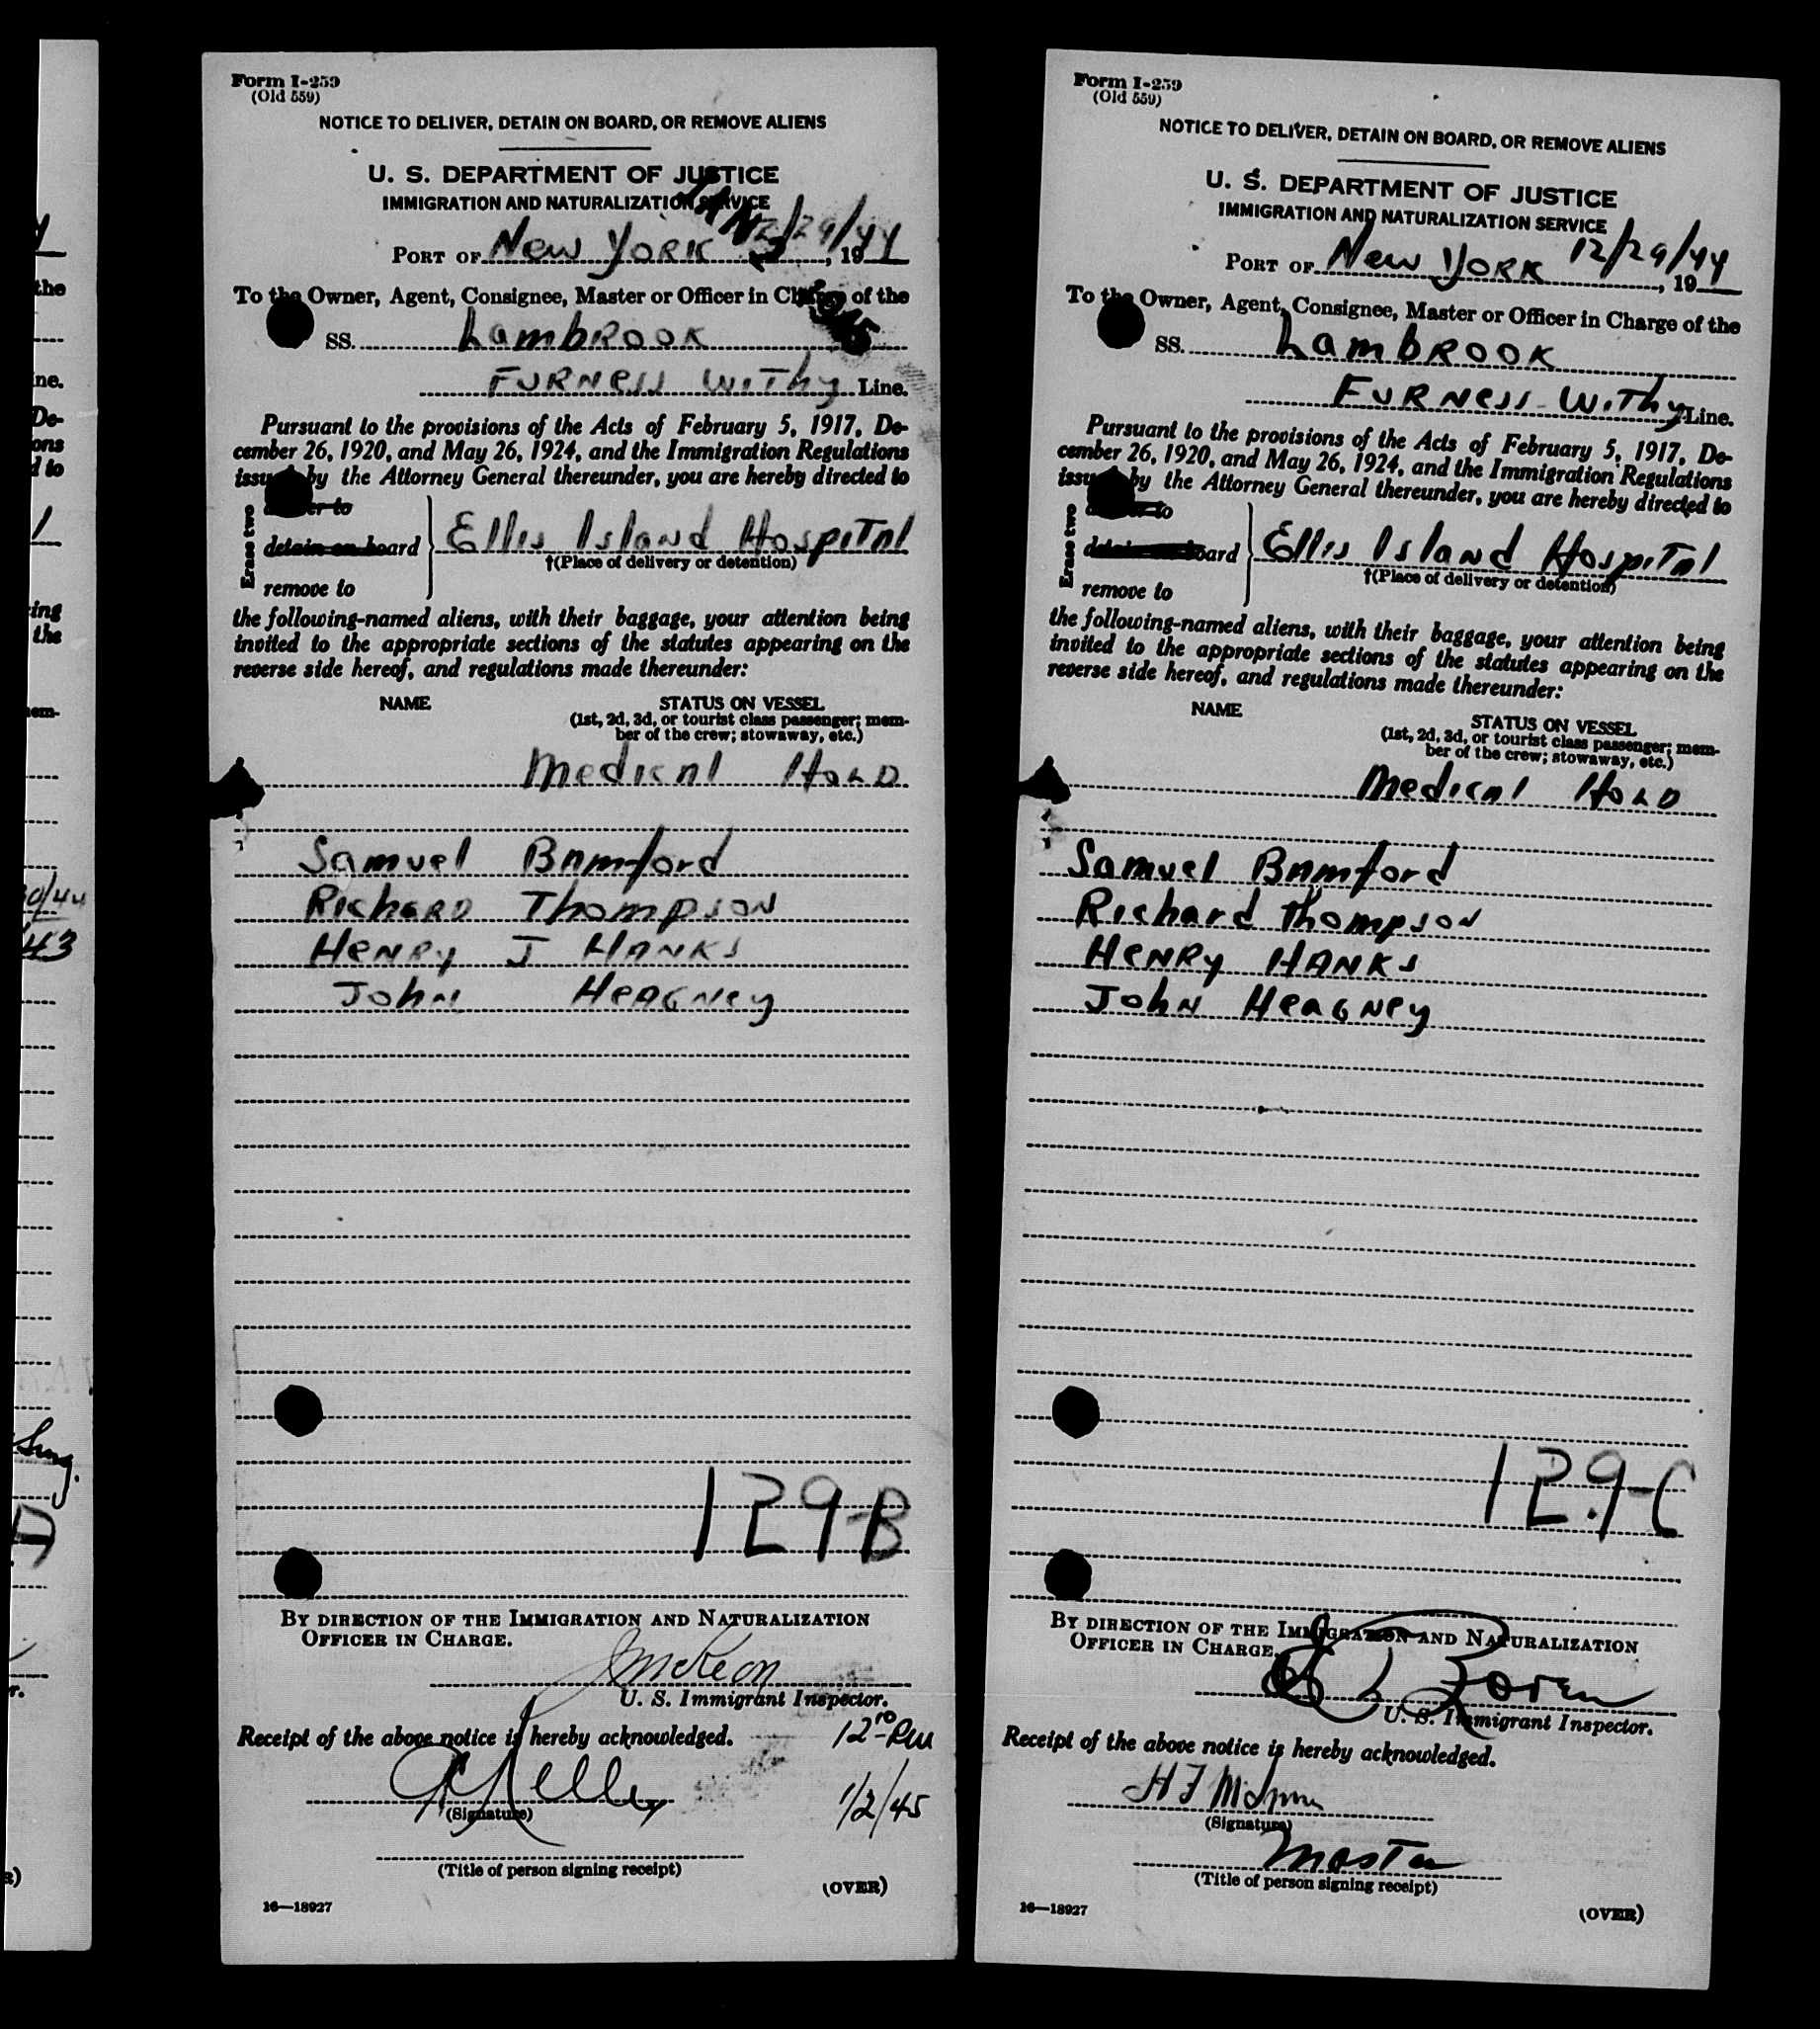 Form I-259
(Old 559)
NOTICE TO DELIVER, DETAIN ON BOARD, OR REMOVE ALIENS
U. S. DEPARTMENT OF JUSTICE
IMMIGRATION AND NATURALIZATION SERVICE
PORT OF New York 12/29/44, 19
To the Owner, Agent, Consignee, Master or Officer in Charge of the
SS. Lambrook
Furness Withy Line.
Pursuant to the provisions of the Acts of February 5, 1917, De-
cember 26, 1920, and May 26, 1924, and the Immigration Regulations
issued by the Attorney General thereunder, you are hereby directed to
Erase two
er to
detain on board
remove to
Ellis Island Hospital
†(Place of delivery or detention)
the following-named aliens, with their baggage, your attention being
invited to the appropriate sections of the statutes appearing on the
reverse side hereof, and regulations made thereunder:
NAME STATUS ON VESSEL
(1st, 2d, 3d, or tourist class passenger; mem-
ber of the crew; stowaway, etc.)
Medical Hold
Samuel Bamford
Richard Thompson
Henry J Hanks
John Heagney
129-B
BY DIRECTION OF THE IMMIGRATION AND NATURALIZATION
OFFICER IN CHARGE.
J McKeon
U. S. Immigrant Inspector.
Receipt of the above notice is hereby acknowledged.
12 10 PM
Kelly
1/2/45
(Signature)
(Title of person signing receipt)
(OVER)
16—18927
Form I-259
(Old 559)
NOTICE TO DELIVER, DETAIN ON BOARD, OR REMOVE ALIENS
U. S. DEPARTMENT OF JUSTICE
IMMIGRATION AND NATURALIZATION SERVICE
PORT OF New York 12/29/44, 19
To the Owner, Agent, Consignee, Master or Officer in Charge of the
SS. Lambrook
Furness-Withy Line.
Pursuant to the provisions of the Acts of February 5, 1917, De-
cember 26, 1920, and May 26, 1924, and the Immigration Regulations
issued by the Attorney General thereunder, you are hereby directed to
Erase two
to
detain on board
remove to
Ellis Island Hospital
†(Place of delivery or detention)
the following-named aliens, with their baggage, your attention being
invited to the appropriate sections of the statutes appearing on the
reverse side hereof, and regulations made thereunder:
NAME STATUS ON VESSEL
(1st, 2d, 3d, or tourist class passenger; mem-
ber of the crew; stowaway, etc.)
Medical Hold
Samuel Bamford
Richard Thompson
Henry Hanks
John Heagney
129-C
BY DIRECTION OF THE IMMIGRATION AND NATURALIZATION
OFFICER IN CHARGE.
U. S. Immigrant Inspector.
Receipt of the above notice is hereby acknowledged.
(Signature)
Master
(Title of person signing receipt)
16—18927
(OVER)